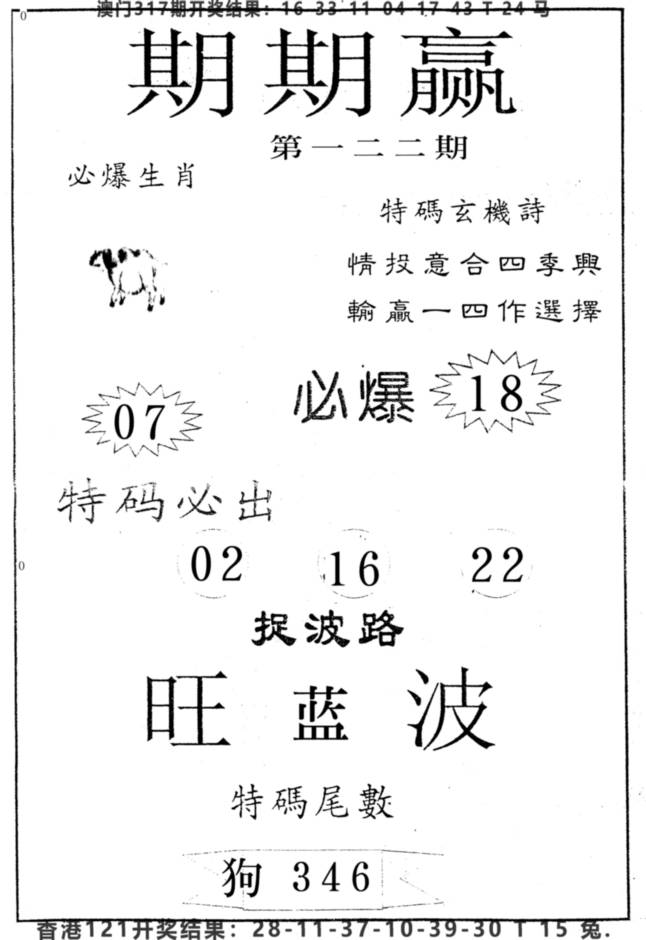 澳门317期开奖结果：16-33-11-04-17-43 T 24 马
期期赢
第一二二期
必爆生肖
特碼玄機詩
情投意合四季興
輸贏一四作選擇
07
必爆 18
特码必出
02 16 22
捉波路
旺 蓝 波
特碼尾數
狗 346
香港121开奖结果：28-11-37-10-39-30 T 15 兔.